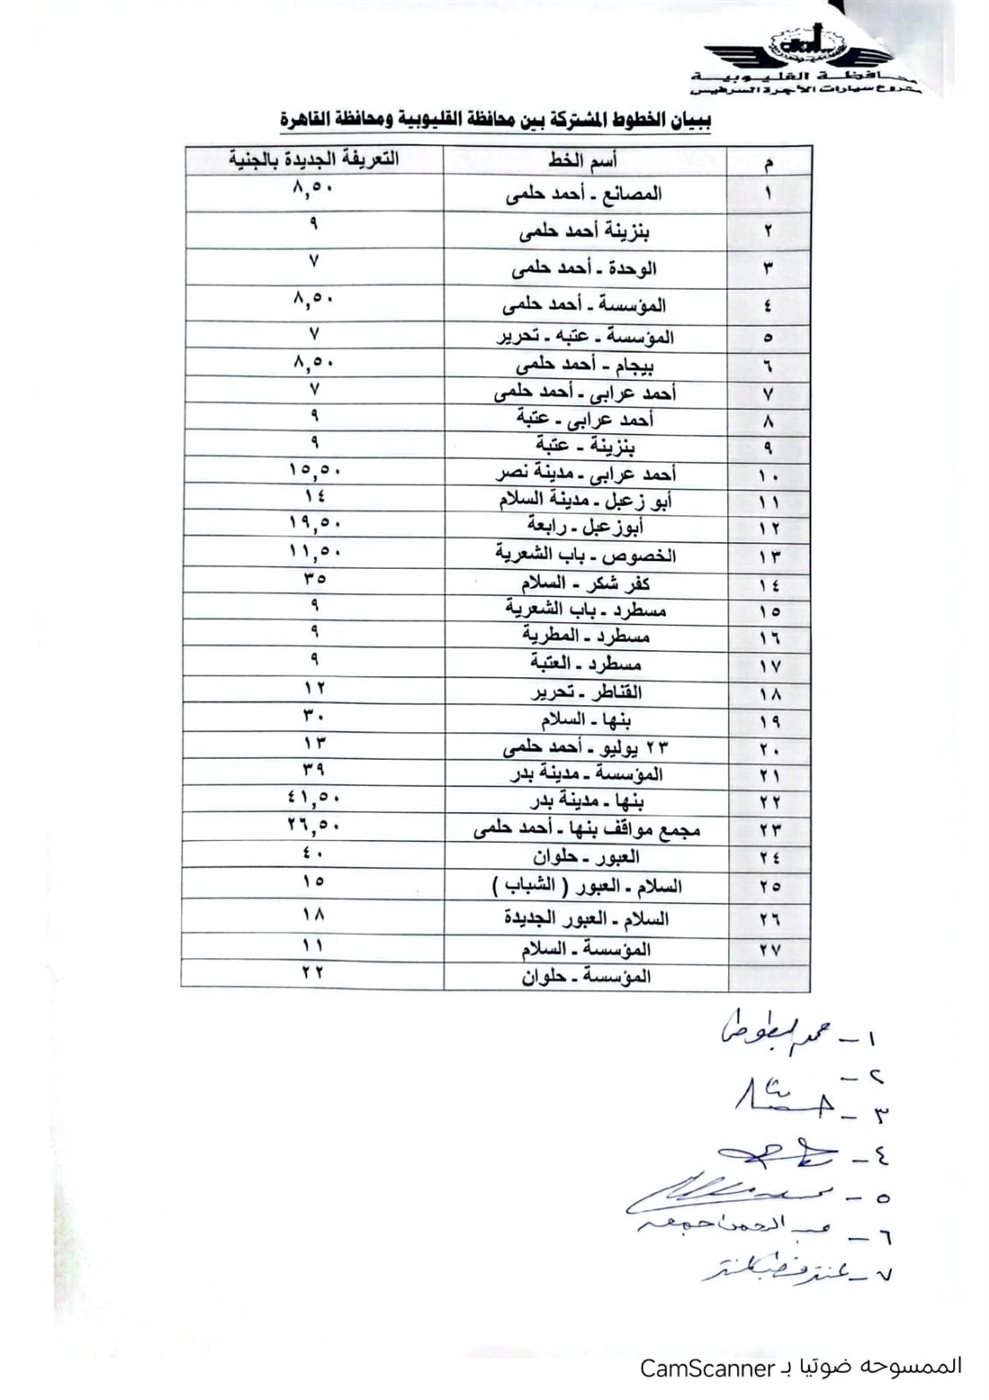 محافظة القليوبية
مشروع سيارات الأجرة السرفيس
ببيان الخطوط المشتركة بين محافظة القليوبية ومحافظة القاهرة
م أسم الخط التعريفة الجديدة بالجنية
١ المصانع - أحمد حلمى ٨,٥٠
٢ بنزينة أحمد حلمى ٩
٣ الوحدة - أحمد حلمى ٧
٤ المؤسسة - أحمد حلمى ٨,٥٠
٥ المؤسسة - عتبه - تحرير ٧
٦ بيجام - أحمد حلمى ٨,٥٠
٧ أحمد عرابى - أحمد حلمى ٧
٨ أحمد عرابى - عتبة ٩
٩ بنزينة - عتبة ٩
١٠ أحمد عرابى - مدينة نصر ١٥,٥٠
١١ أبو زعبل - مدينة السلام ١٤
١٢ أبوزعبل - رابعة ١٩,٥٠
١٣ الخصوص - باب الشعرية ١١,٥٠
١٤ كفر شكر - السلام ٣٥
١٥ مسطرد - باب الشعرية ٩
١٦ مسطرد - المطرية ٩
١٧ مسطرد - العتبة ٩
١٨ القناطر - تحرير ١٢
١٩ بنها - السلام ٣٠
٢٠ ٢٣ يوليو - أحمد حلمى ١٣
٢١ المؤسسة - مدينة بدر ٣٩
٢٢ بنها - مدينة بدر ٤١,٥٠
٢٣ مجمع مواقف بنها - أحمد حلمى ٢٦,٥٠
٢٤ العبور - حلوان ٤٠
٢٥ السلام - العبور ( الشباب ) ١٥
٢٦ السلام - العبور الجديدة ١٨
٢٧ المؤسسة - السلام ١١
المؤسسة - حلوان ٢٢
١ -
٢ -
٣ -
٤ -
٥ -
٦ - عبد الرحمن جمعه
٧ -
الممسوحه ضوئيا بـ CamScanner